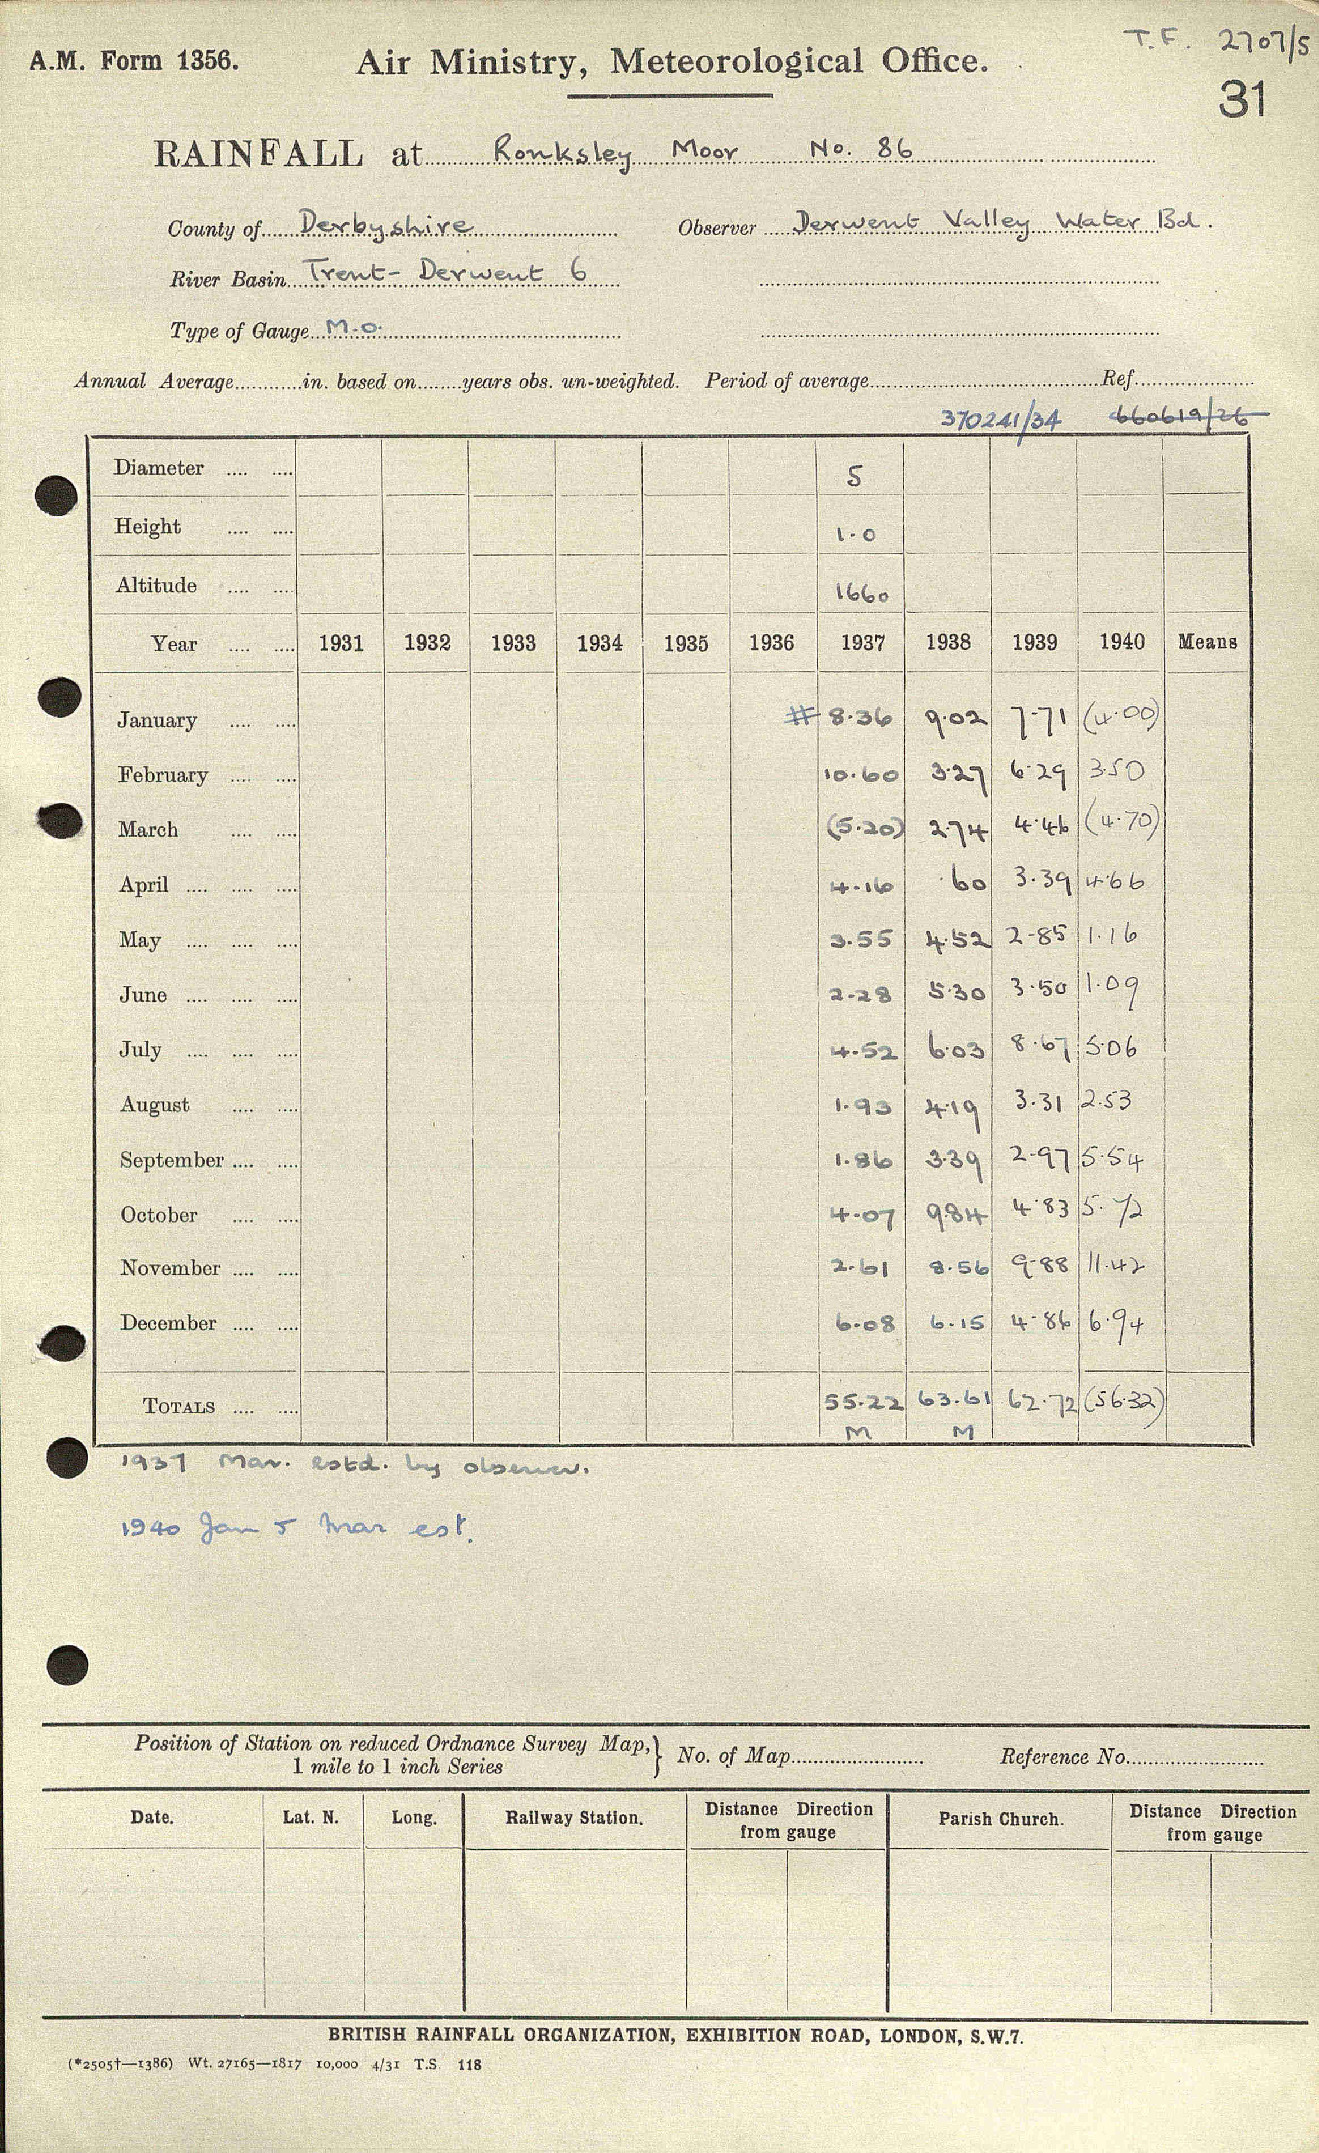 T.F. 2707/5
A.M. Form 1356. Air Ministry, Meteorological Office.
31
RAINFALL at Ronksley Moor No. 86
County of Derbyshire Observer Derwent Valley Water Bd.
River Basin Trent-Derwent 6
Type of Gauge M.O.
Annual Average in. based on years obs. un-weighted. Period of average Ref.
370241/34 660619/26
Diameter 5
Height 1.0
Altitude 1660
Year 1931 1932 1933 1934 1935 1936 1937 1938 1939 1940 Means
January # 8.36 9.02 7.71 (4.00)
February 10.60 3.27 6.29 3.50
March (5.20) 2.74 4.46 (4.70)
April 4.16 .60 3.39 4.66
May 3.55 4.52 2.85 1.16
June 2.28 5.30 3.50 1.09
July 4.52 6.03 8.67 5.06
August 1.93 4.19 3.31 2.53
September 1.86 3.39 2.97 5.54
October 4.07 9.84 4.83 5.72
November 2.61 8.56 9.88 11.42
December 6.08 6.15 4.86 6.94
TOTALS 55.22 63.61 62.72 (56.32)
M M
1937 Mar. estd. by observer.
1940 Jan & Mar est.
Position of Station on reduced Ordnance Survey Map,} No. of Map Reference No.
1 mile to 1 inch Series
Date. Lat. N. Long. Railway Station. Distance Direction from gauge Parish Church. Distance Direction from gauge
BRITISH RAINFALL ORGANIZATION, EXHIBITION ROAD, LONDON, S.W.7.
(*2505†—1386) Wt. 27165—1817 10,000 4/31 T.S. 118